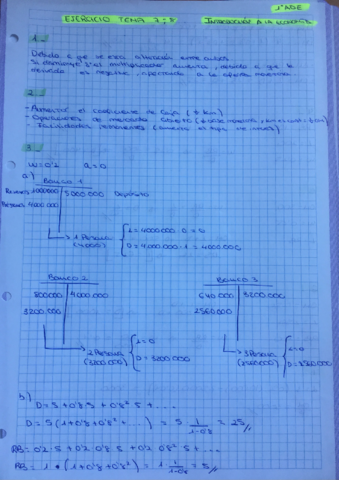 EJERCICIO TEMA 7 y 8 INTRODUCCIÓN A LA ECONOMÍA 1º ADE
1.-
Debido a que se crea
Si disminuye el multiplicador aumenta, debido a que la
es negativa, aportando a la oferta monetaria.
2.-
- Aumentar el coeficiente de caja
- Operaciones de mercado abierto
- Facilidades permanentes (aumenta el tipo de interés)
3.-
w=0'2 a=0
a)
Banco 1
Reservas 1000000 5000000 Depósito
Préstamos 4000000
1 Persona (4000)
L=4000000·0=0
D=4000000·1=4000000
Banco 2
800000 4000000
3200000
2 Persona (3200000)
L=0
D=3200000
Banco 3
640000 3200000
2560000
3 Persona (2560000)
L=0
D=2560000
b)
D= 5 + 0'8·5 + 0'8²·5 + ....
D= 5 (1+0'8+0'8²+ ....) = 5 1/1-0'8 = 25
RB= 0'2·5 + 0'2·0'8·5 + 0'2·0'8²·5 + ...
RB= 1 · (1+0'8+0'8²) = 1 1/1-0'8 = 5